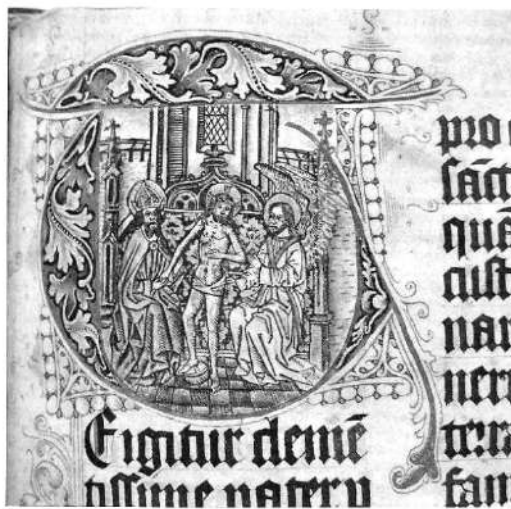 TE igitur clemē
tissime pater p
pro
sāct
quā
cust
nar
nere
terra
fam